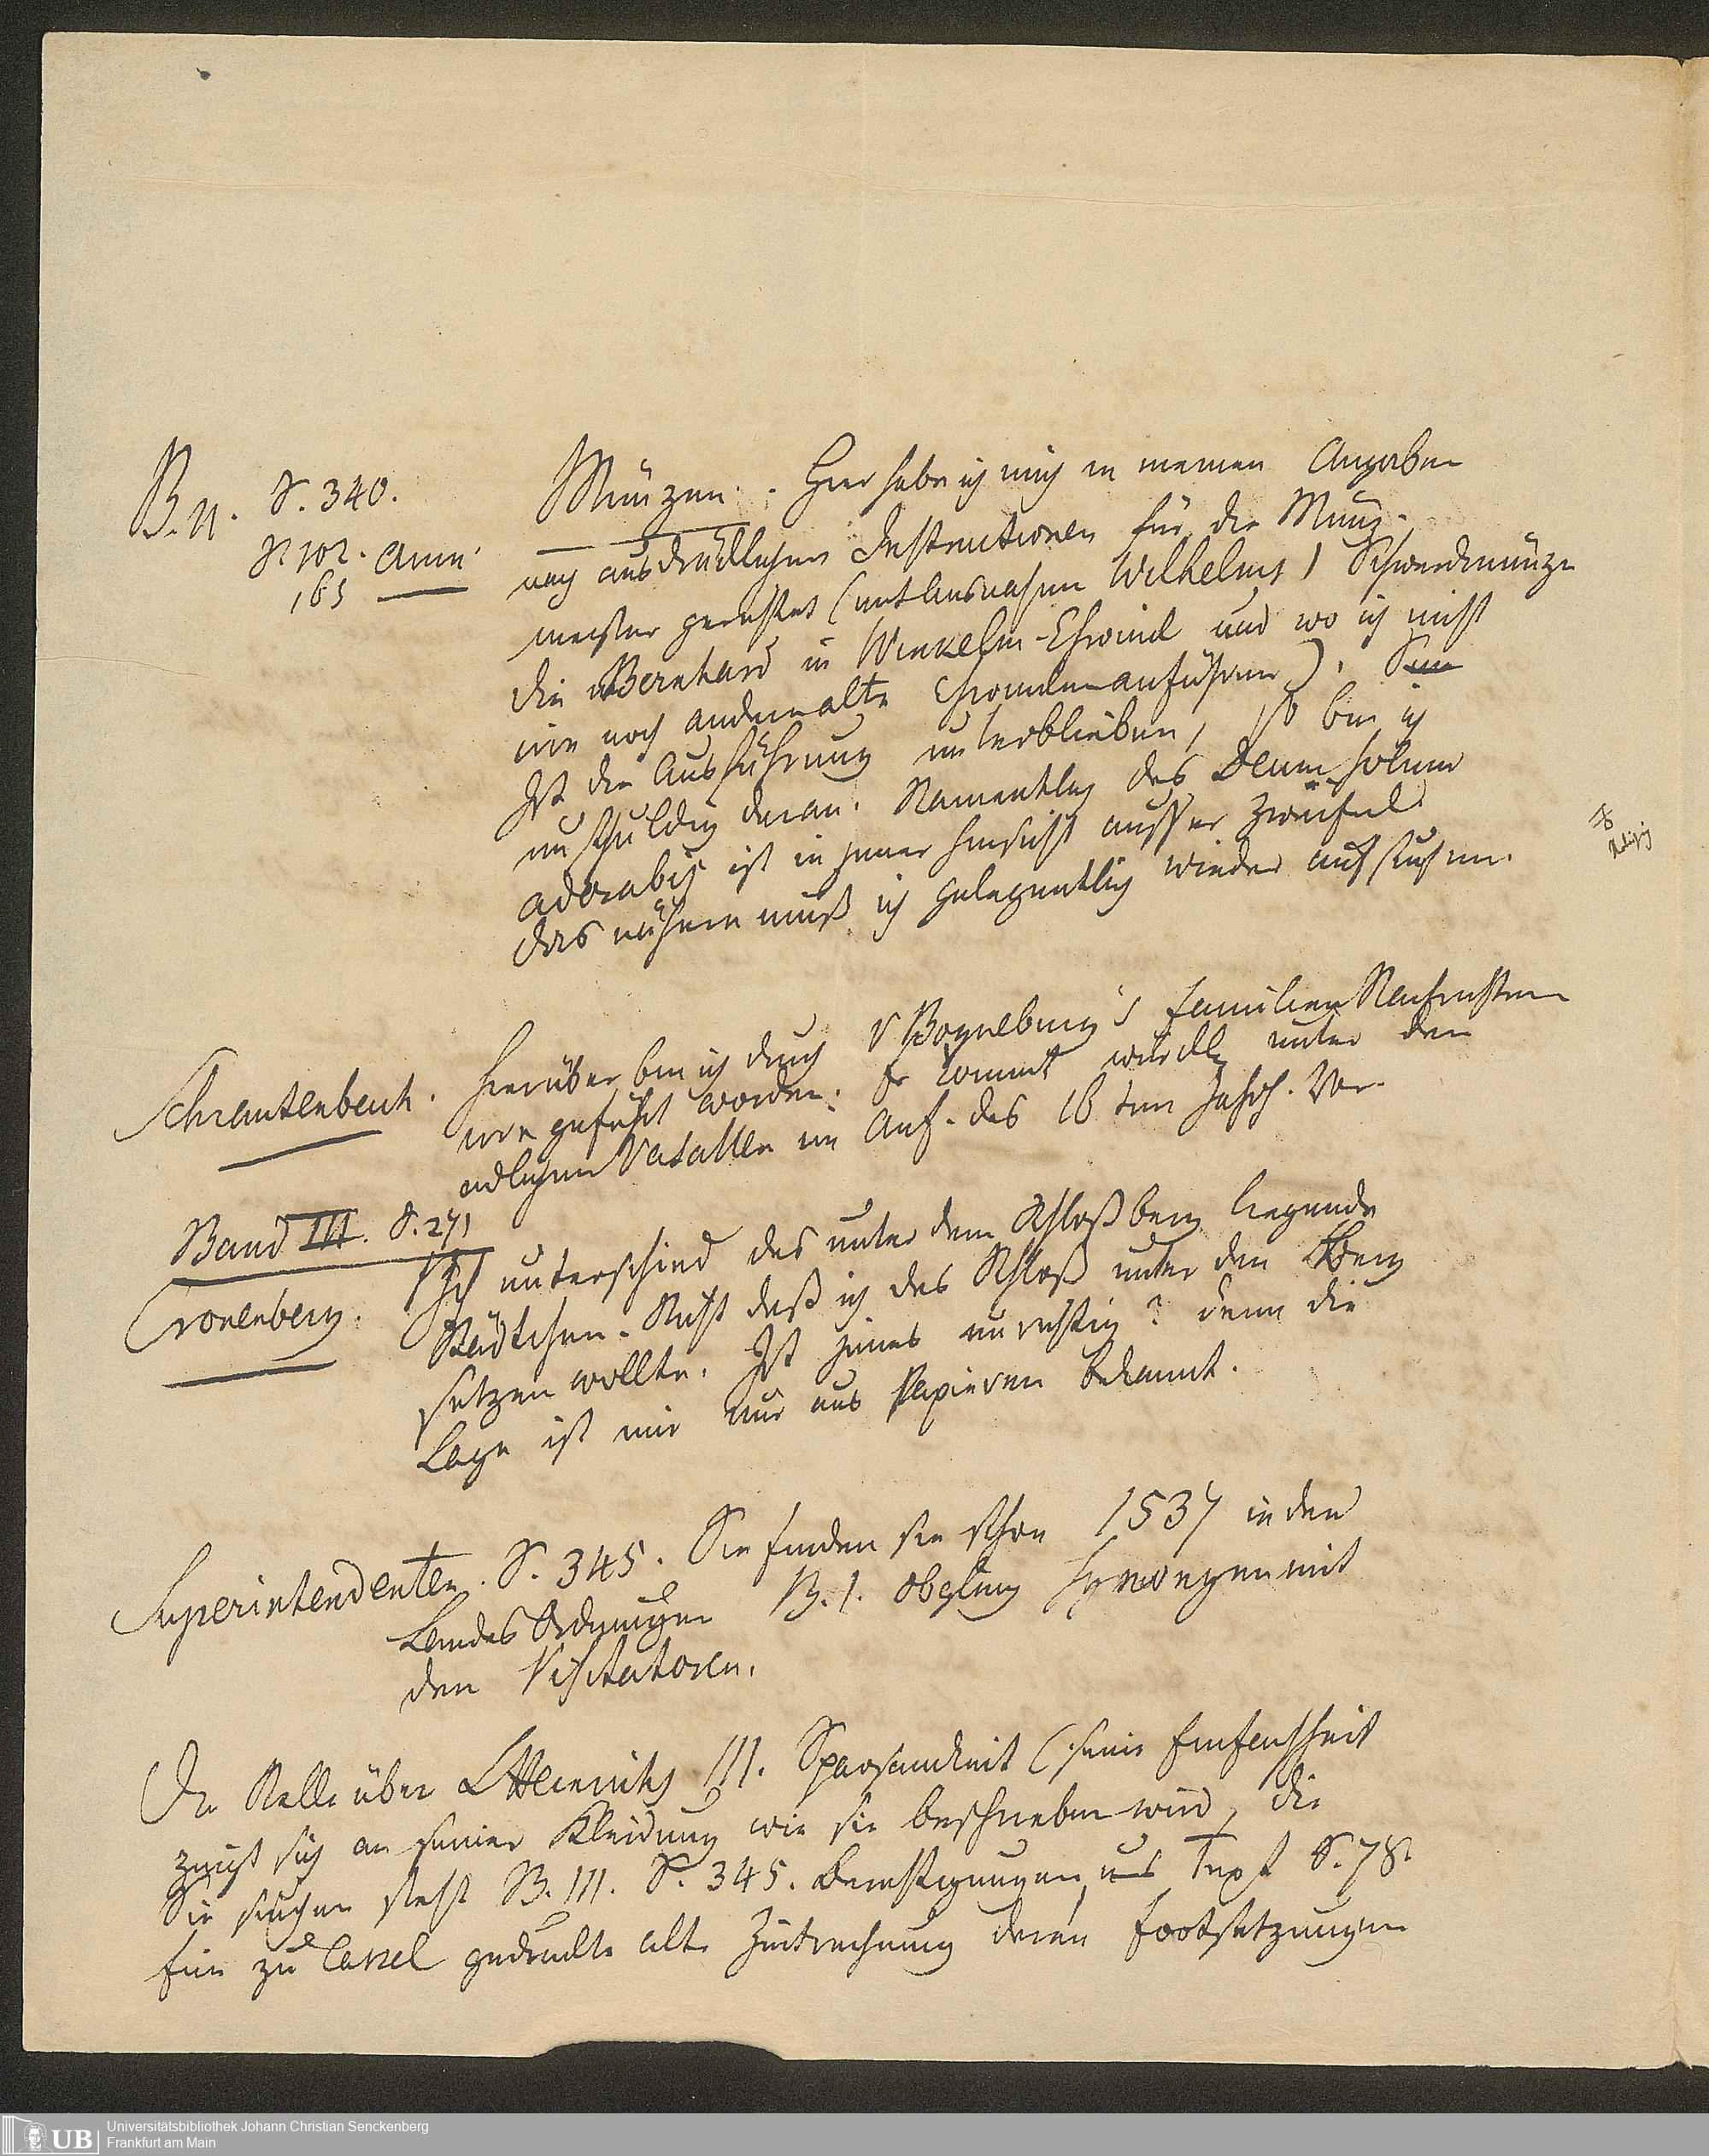 B. II. S. 340.
S. 102. Anm.
165
Münzen. Hier habe ich mich in meinen Angaben
nach ausdrücklichen Instructionen für die Münz-
meister gerichtet (mit Ausnahme Wilhelms I Schwerdmünze
die Bernhard in Winkelm. Chronik und wo ich nicht
irre noch andere alte Chroniken anführen).
Ist die Ausführung unterblieben, so bin ich
unschuldig daran. Namentlich des Deum solum
adorabis ist in jener Hinsicht ausser Zweifel.
das nähere muß ich gelegentlich wieder aufsuchen.
Schrautenbach. Hierüber bin ich durch v Boyneburg's Familien Nachrichten
irre geführt worden. Er kommt wirklich unter den
adlichen Vasallen im Anf. des 16ten Jahrh. vor.
Band III. S. 271
Cronenberg. Ich unterschied das unter dem Schloßberg liegende
Städtchen. Nicht daß ich das Schloß unter den Berg
setzen wollte. Ist jenes unrichtig? denn die
Lage ist mir nur aus Papieren bekannt.
Superintendenten. S. 345. Sie finden sie schon 1537 in den
Landes Ordnungen B. I. obgleich synonym mit
den Visitatoren.
Die Stelle über L Heinrichs III. Sparsamkeit (seine Einfachheit
zeigt sich an seiner Kleidung wie sie beschrieben wird, die
Sie suchen steht B. III. S. 345. Berichtigungen Text S. 78.
Eine zu Cassel gedruckte alte Zeitrechnung deren Fortsetzungen
Universitätsbibliothek Johann Christian Senckenberg
Frankfurt am Main
UB